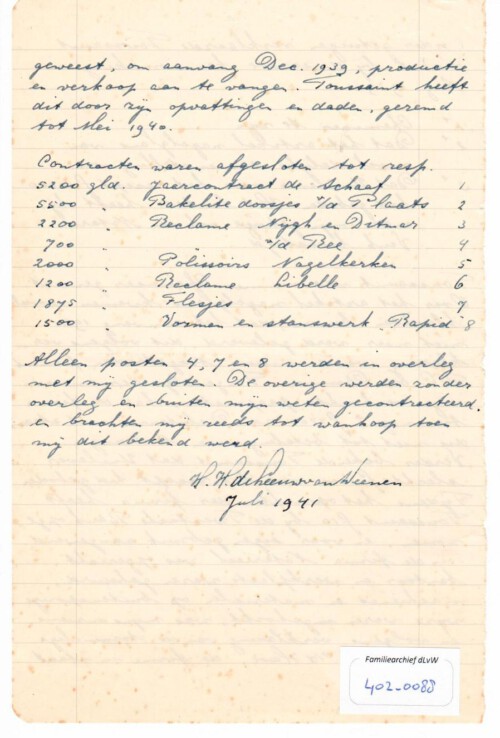 geweest, om aanvang Dec. 1939, productie
en verkoop aan te vangen. Toussaint heeft
dit door zijn opvattingen en daden, geremd
tot Mei 1940.
Contracten waren afgesloten tot resp.
5200 gld. Jaarcontract de Schaaf 1
5500 " Bakelite doosjes v/d Plaats 2
2200 " Reclame Nijgh en Ditmar 3
700 " " v/d Ree 4
2000 " Polissoirs Nagelkerken 5
1200 " Reclame Libelle 6
1875 " Flesjes 7
1500 " Vormen en stanswerk "Rapid" 8
Alleen posten 4, 7 en 8 werden in overleg
met mij gesloten. De overige werden zonder
overleg en buiten mijn weten gecontracteerd.
en brachten mij reeds tot wanhoop toen
mij dit bekend werd.
H. H. de Leeuw van Weenen
Juli 1941
Familiearchief dLvW
402-0088